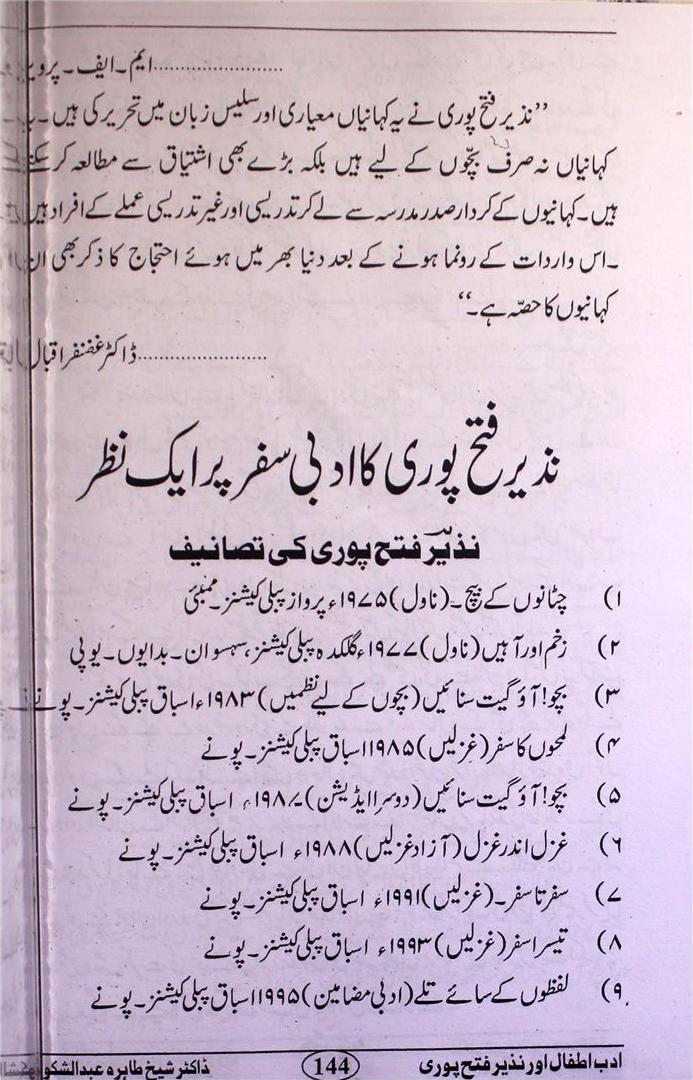 ....................ایم۔ایف۔پرویز
’’نذیر فتح پوری نے یہ کہانیاں معیاری اور سلیس زبان میں تحریر کی ہیں۔
کہانیاں نہ صرف بچّوں کے لیے ہیں بلکہ بڑے بھی اشتیاق سے مطالعہ کر سکتے
ہیں۔کہانیوں کے کردار صدر مدرسہ سے لے کر تدریسی اور غیر تدریسی عملے کے افراد ہیں
۔اس واردات کے رونما ہونے کے بعد دنیا بھر میں ہوئے احتجاج کا ذکر بھی ان
کہانیوں کا حصّہ ہے۔‘‘
....................ڈاکٹر غضنفر اقبال
نذیر فتح پوری کا ادبی سفر پر ایک نظر
نذیر فتح پوری کی تصانیف
۱) چٹانوں کے بیچ۔(ناول)۱۹۷۵ء پرواز پبلی کیشنز۔ممبئی
۲) زخم اور آہیں(ناول)۱۹۷۷ء گلکدہ پبلی کیشنز، سہسوان۔بدایوں۔یوپی
۳) بچو! آؤ گیت سنائیں(بچوں کے لیے نظمیں)۱۹۸۳ء اسباق پبلی کیشنز۔پونے
۴) لمحوں کا سفر(غزلیں)۱۹۸۵ اسباق پبلی کیشنز۔پونے
۵) بچو! آؤ گیت سنائیں(دوسرا ایڈیشن)۱۹۸۷ء اسباق پبلی کیشنز۔پونے
۶) غزل اندر غزل(آزاد غزلیں)۱۹۸۸ء اسباق پبلی کیشنز۔پونے
۷) سفر تا سفر۔(غزلیں)۱۹۹۱ء اسباق پبلی کیشنز۔پونے
۸) تیسرا سفر(غزلیں)۱۹۹۳ء اسباق پبلی کیشنز۔پونے
۹) لفظوں کے سائے تلے(ادبی مضامین)۱۹۹۵ اسباق پبلی کیشنز۔پونے
ادب اطفال اور نذیر فتح پوری 144 ڈاکٹر شیخ طاہرہ عبدالشکور